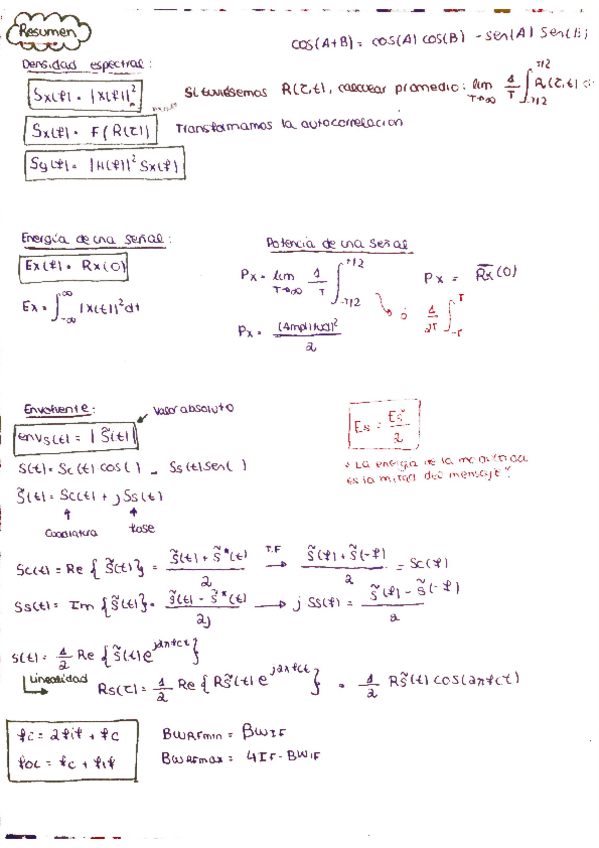 Resumen
cos(A+B) = cos(A) cos(B) - sen(A) sen(B)
Densidad espectral:
Sx(f) = |X(f)|²
Si tuviésemos R(τ,t), calcular promedio: lim T→∞ 1/T ∫ -T/2 T/2 R(τ,t)
Sx(f) = F(R(τ))
Transformamos la autocorrelación
Sy(f) = |H(f)|² Sx(f)
Energía de una señal:
Potencia de una señal
Ex(f) = Rx(0)
Px = lim T→∞ 1/T ∫ -T/2 T/2
Px = R̄x(0)
Ex = ∫ -∞ ∞ |X(t)|² dt
ó 1/2T ∫ -T T
Px = (Amplitud)²/2
Envolvente:
Valor absoluto
envs(t) = |S̃(t)|
Es = Es̃/2
S(t) = Sc(t) cos( ) - Ss(t) sen( )
La energía de la
es la mitad del mensaje
S̃(t) = Sc(t) + j Ss(t)
Cuadratura
fase
Sc(t) = Re { S̃(t) } = S̃(t) + S̃*(t) / 2 T.F → S̃(f) + S̃(-f) / 2 = Sc(f)
Ss(t) = Im { S̃(t) } = S̃(t) - S̃*(t) / 2j → j Ss(f) = S̃(f) - S̃(-f) / 2
S(t) = 1/2 Re { S̃(t) e^j2πfct }
Linealidad
Rs(τ) = 1/2 Re { Rs̃(t) e^j2πfct } = 1/2 Rs̃(t) cos(2πfct)
fc = 2fif + fc
BWRFmin = BWIF
foL = fc + fif
BWRFmax = 4IF - BWIF